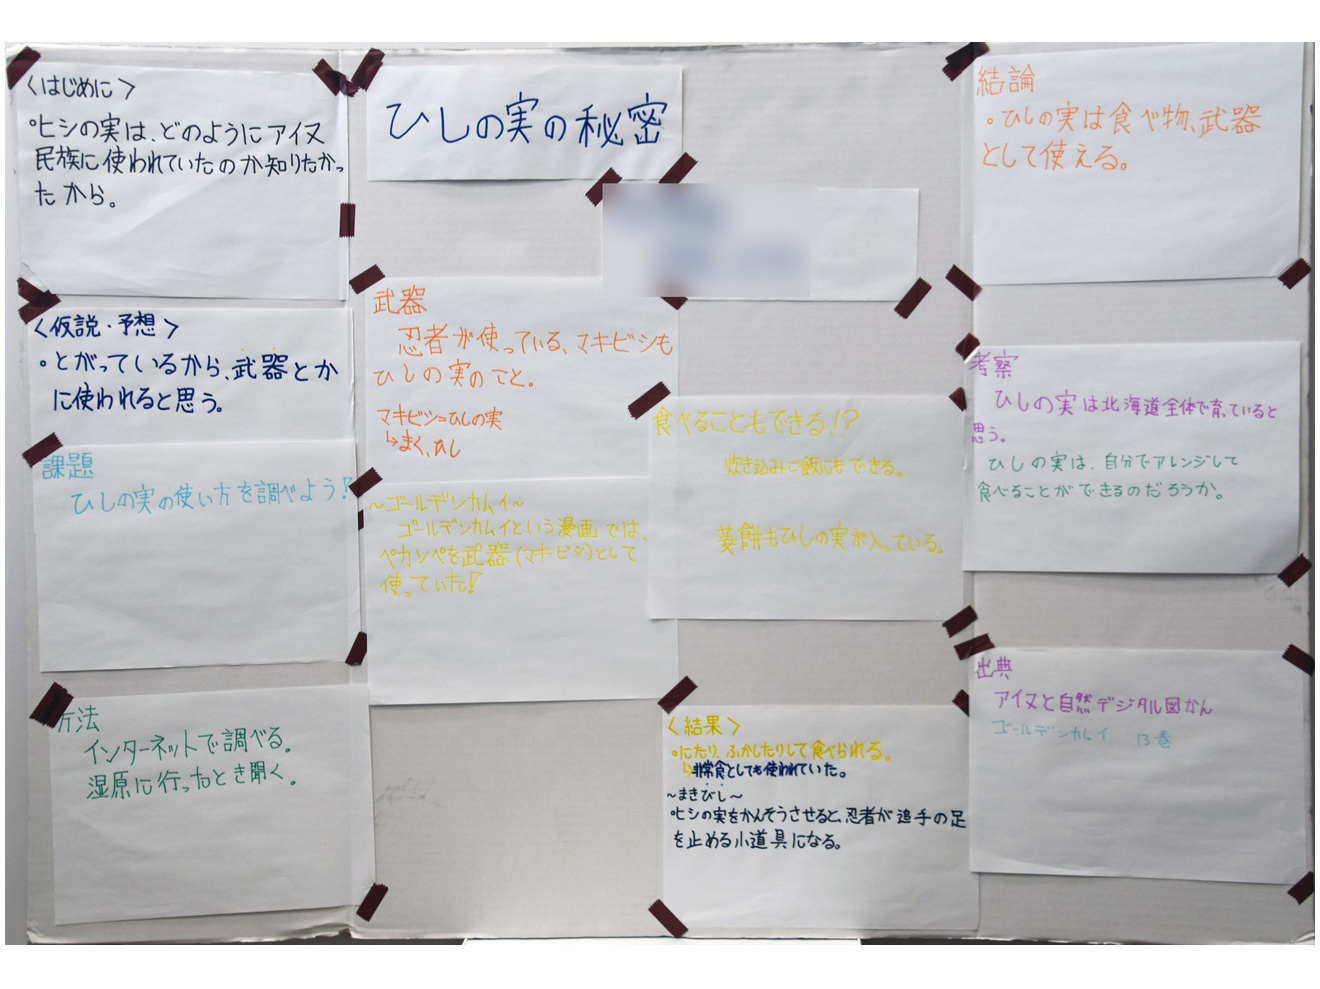 <はじめに>
°ヒシの実は、どのようにアイヌ
民族に使われていたのか知りたかっ
たから。
<仮説・予想>
・とがっているから、武器とか
に使われると思う。
課題
ひしの実の使い方を調べよう!
方法
インターネットで調べる。
湿原に行ったとき聞く。
ひしの実の秘密
武器
忍者が使っている、マキビシも
ひしの実のこと。
マキビシ=ひしの実
↳まく、ひし
~ゴールデンカムイ~
ゴールデンカムイという漫画では、
ペカンペを武器(マキビシ)として
使っていた!
食べることもできる!?
炊き込みご飯にもできる。
菱餅もひしの実が入っている。
<結果>
・にたり、ふかしたりして食べられる。
↳非常食としても使われていた。
~まきびし~
°ヒシの実をかんそうさせると、忍者が追手の足
を止める小道具になる。
結論
・ひしの実は食べ物、武器
として使える。
考察
ひしの実は北海道全体で育っていると
思う。
ひしの実は、自分でアレンジして
食べることができるのだろうか。
出典
アイヌと自然デジタル図かん
ゴールデンカムイ 13巻